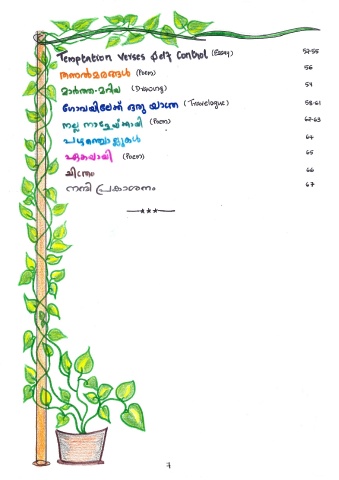 Temptation Verses Self Control (Essay) 52-55
തണൽമരങ്ങൾ (Poem) 56
മാർത്ത-മറിയ (Drawing) 57
ഗോവയിലേക്ക് ഒരു യാത്ര (Travelogue) 58-61
നല്ല നാളേയ്ക്കായി (Poem) 62-63
പഴഞ്ചൊല്ലുകൾ 64
ഏകയായി (Poem) 65
ചിത്രം 66
നന്ദി പ്രകാശനം 67
7